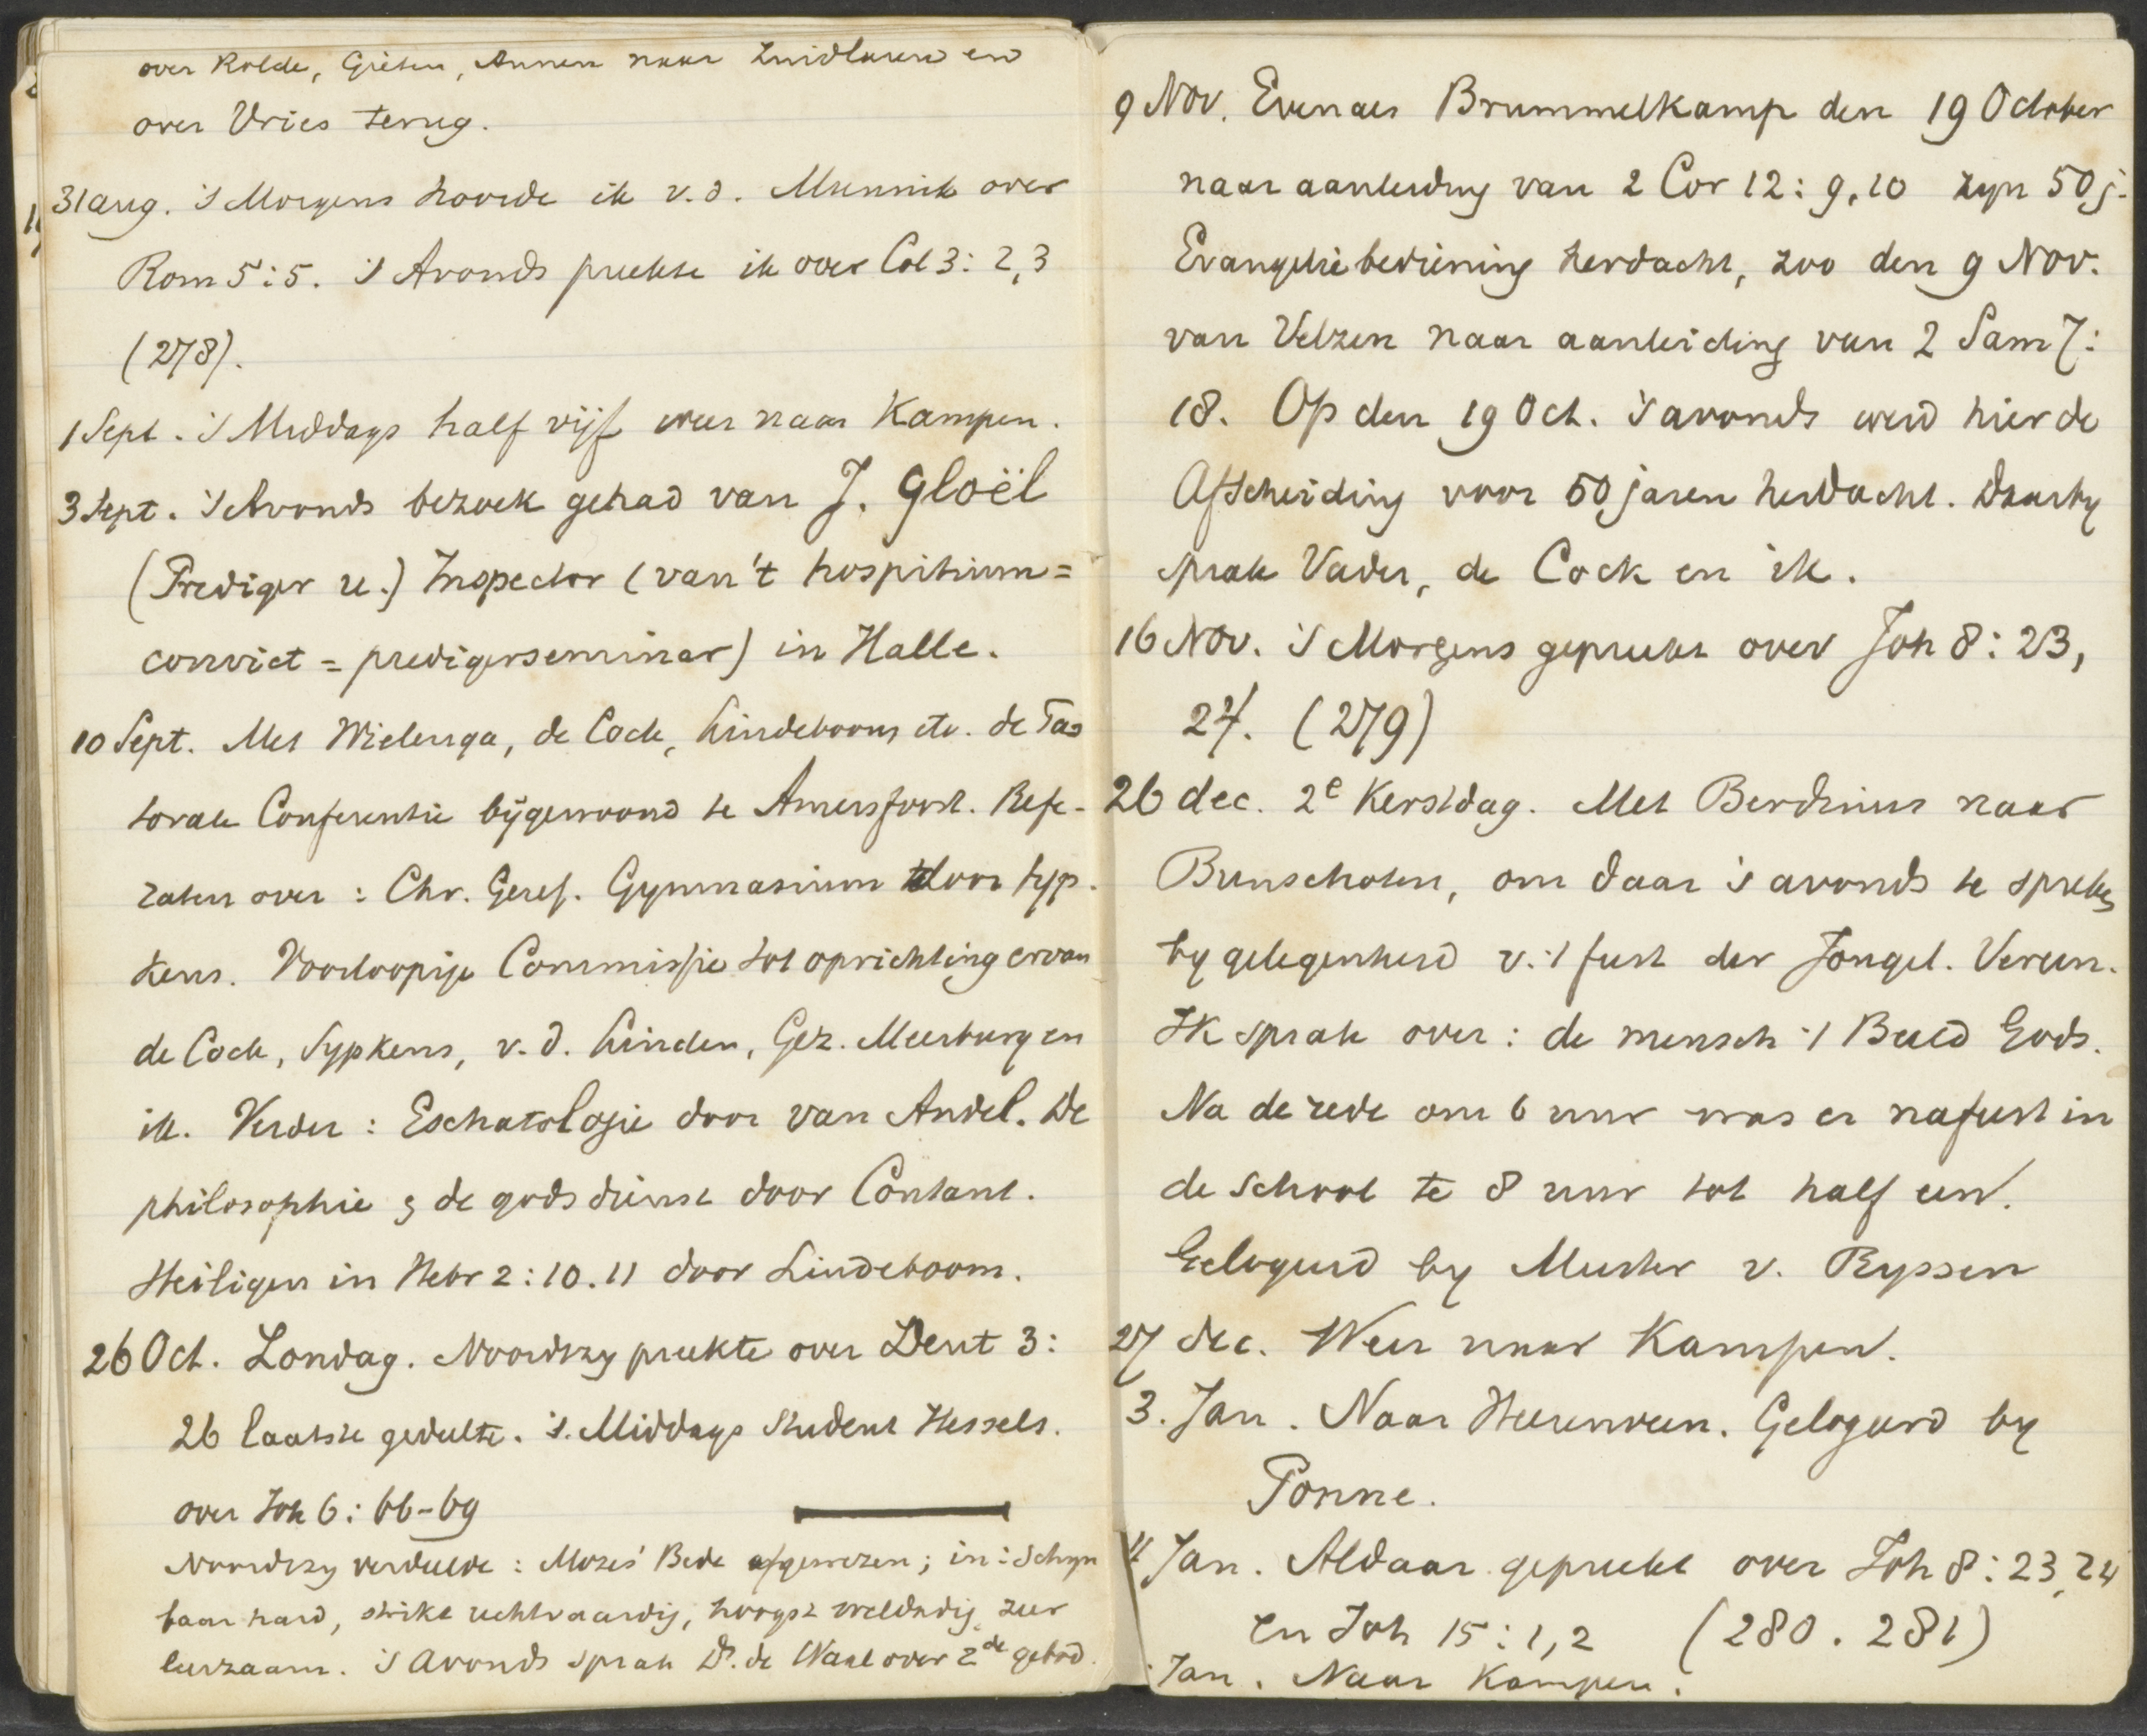 over Rolde, Gieten, Annen naar Zuidlaren en
over Vries terug.
31 aug. 's Morgens hoorde ik v.d. Munnik over
Rom 5:5. 's Avonds preekte ik over Col 3: 2,3
(278).
1 Sept. 's Middags half vijf weer naar Kampen.
3 Sept. 's Avonds bezoek gehad van J. Gloël
(Prediger u.) Inspector (van 't hospitium =
convict = predigerseminar) in Halle.
10 Sept. Met Wielenga, de Cock, Lindeboom etc. de Pas
torale Conferentie bijgewoond te Amersfoort. Refe-
raten over: Chr. Geref. Gymnasium door Syp.
kens. Voorloopige Commissie tot oprichting ervan
de Cock, Sypkens, v.d. Linden, Gez. Meerburg en
ik. Verder: Eschatologie door van Andel. De
philosophie & de godsdienst door Contant.
Heiligen in Hebr 2:10.11 door Lindeboom.
26 Oct. Zondag. Noordzy preekte over Deut 3:
26 laatste gedeelte. 's Middags Student Hessels.
over Joh 6: 66-69
Noordzy verdeelde: Mozes' Bede afgewezen; in: Schyn
baar hard, strikt rechtvaardig, hoogst weldadig, zeer
leerzaam. 's Avonds sprak Ds. de Waal over 2de gebod.
9 Nov. Evenals Brummelkamp den 19 October
naar aanleiding van 2 Cor 12: 9,10 zyn 50 j.
Evangeliebediening herdacht, zoo den 9 Nov.
van Velzen naar aanleiding van 2 Sam 7:
18. Op den 19 Oct. 's avonds werd hier de
Afscheiding voor 50 jaren herdacht. Daarby
sprak Vader, de Cock en ik.
16 Nov. 's Morgens gepreekt over Joh 8: 23,
24. (279)
26 dec. 2e Kerstdag. Met Berdinus naar
Bunschoten, om daar 's avonds te spreken
by gelegenheid v. 't feest der Jongel. Vereen.
Ik sprak over: de mensch 't Beeld Gods.
Na de rede om 6 uur was er nafeest in
de school te 8 uur tot half een.
Gelogeerd by Meester v. Ryssen
27 dec. Weer naar Kampen.
3. Jan. Naar Heerenveen. Gelogeerd by
Ponne.
4 Jan. Aldaar gepreekt over Joh 8: 23,24
en Joh 15: 1,2 (280. 281)
Jan. Naar Kampen.